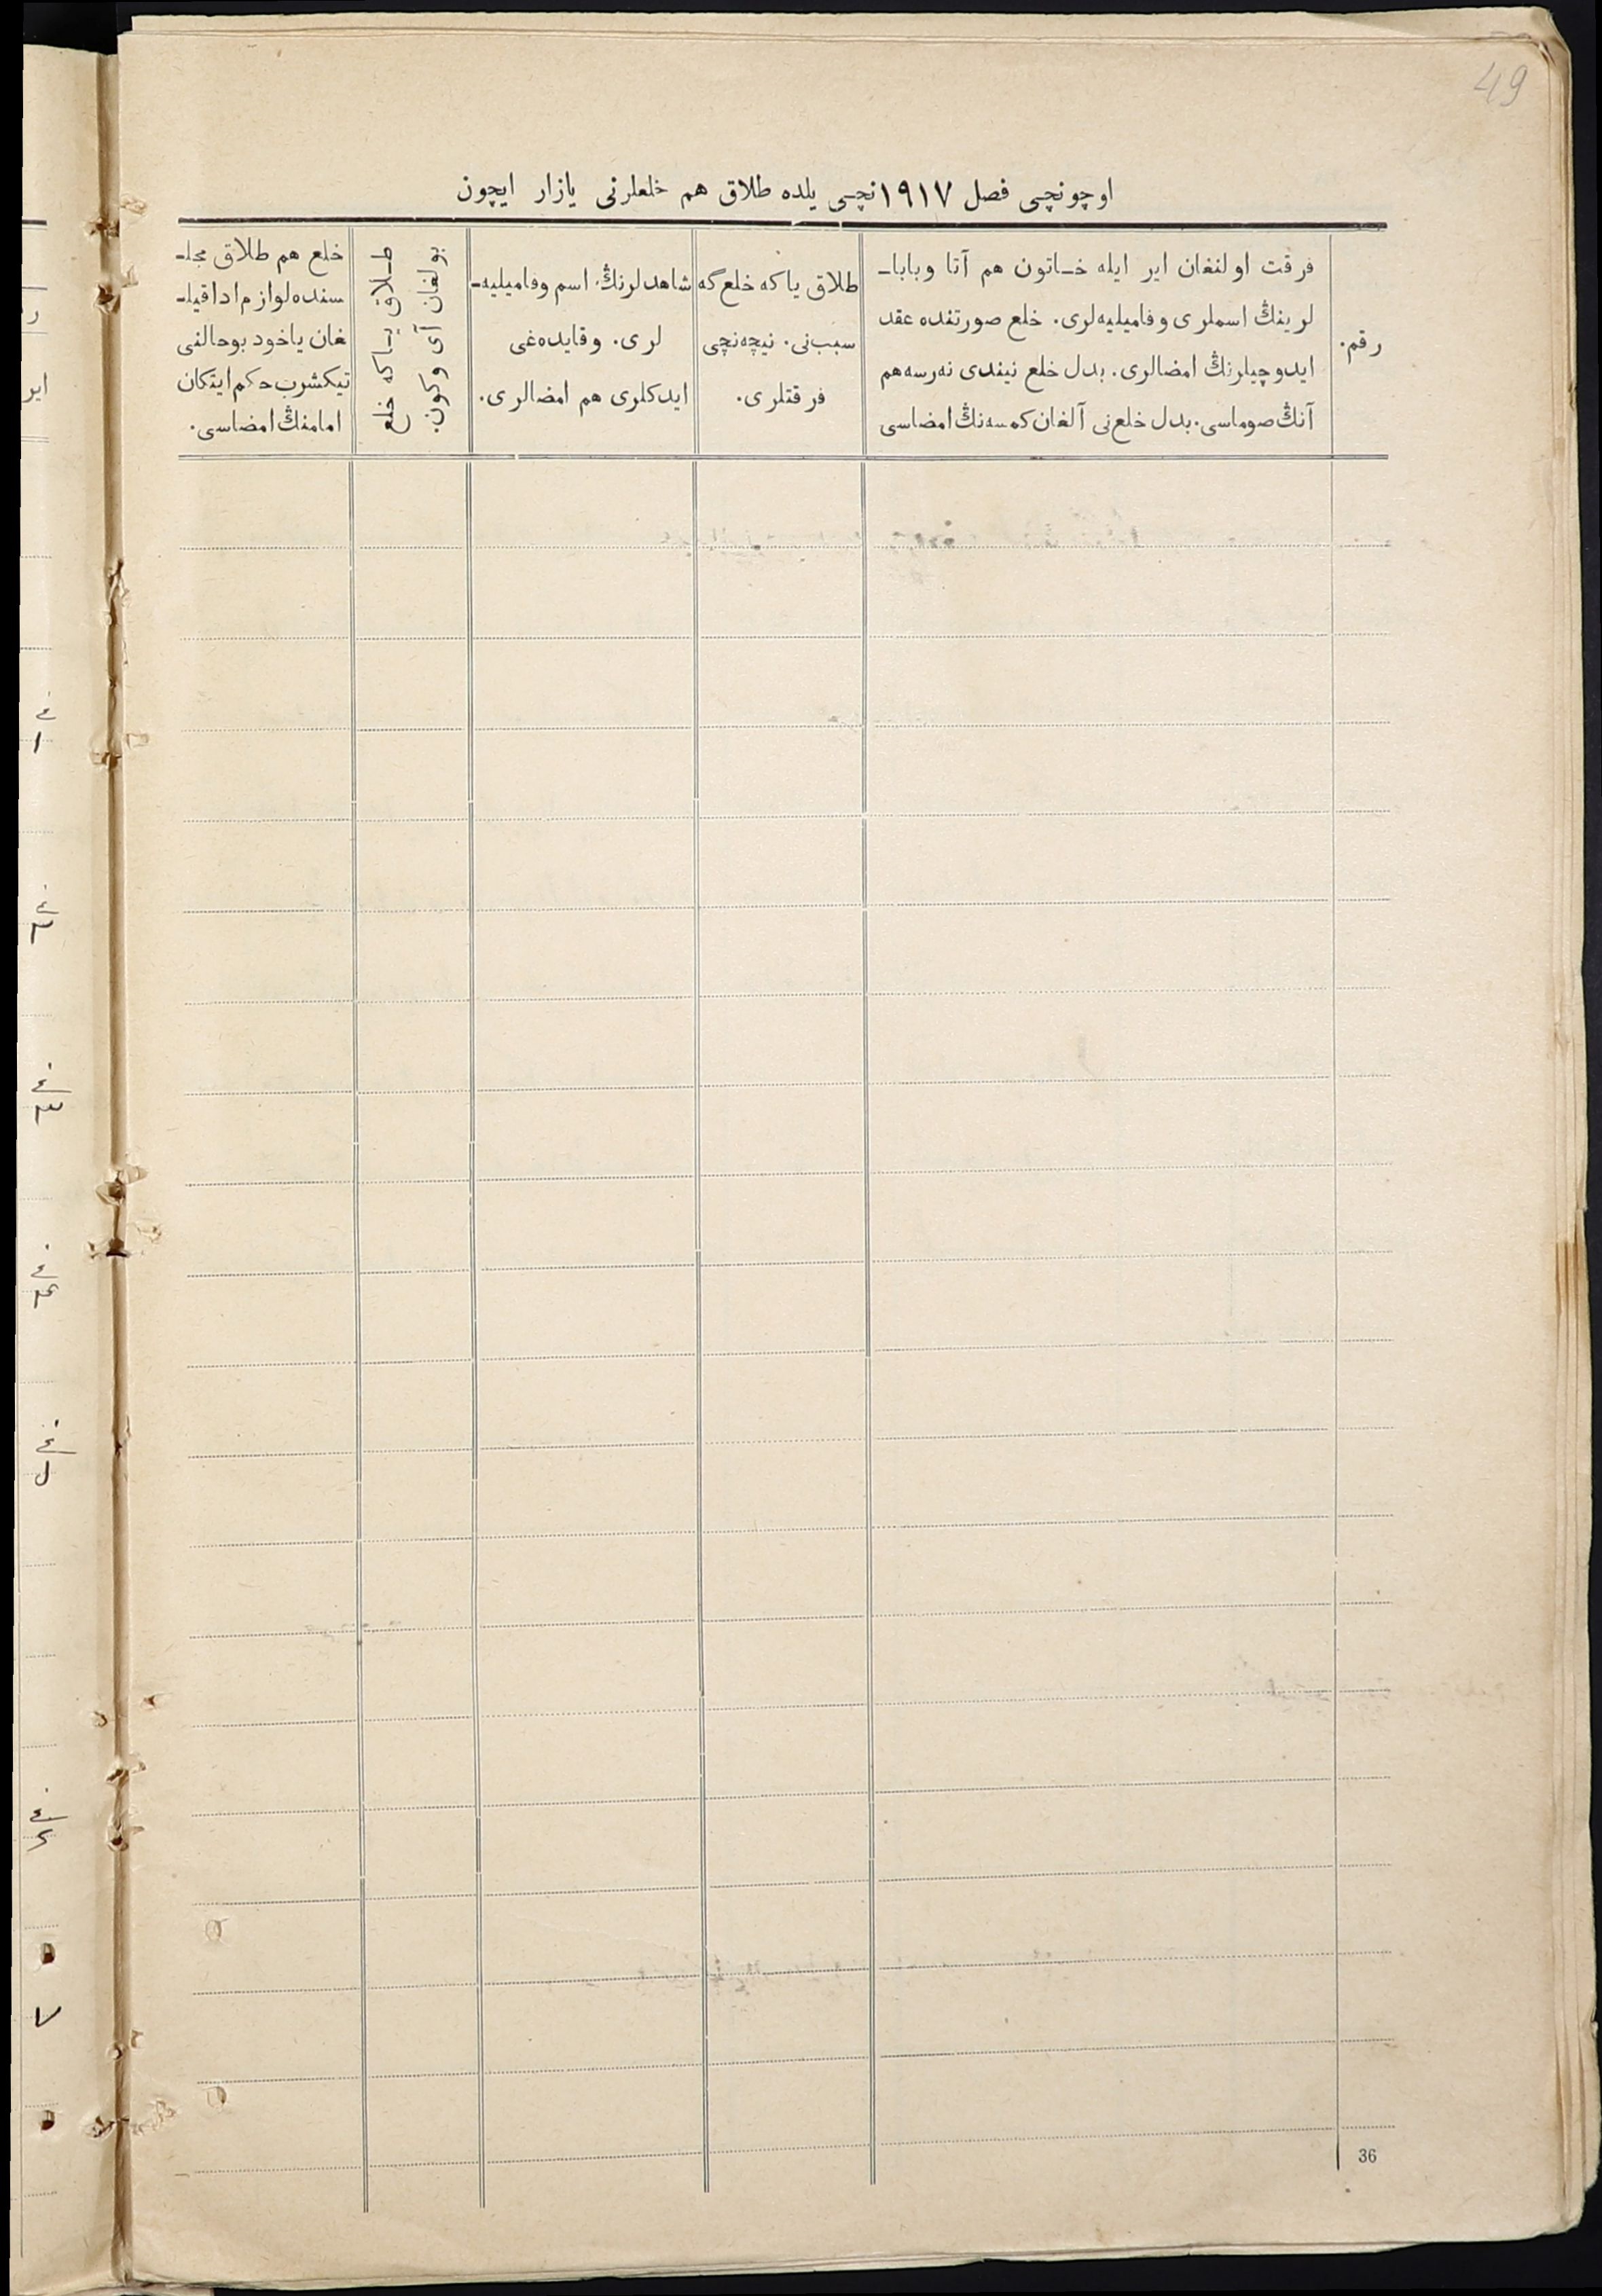 49
اوچونچی فصل ۱۹۱۷نچی یلده طلاق هم خلعلرنی یازار ایچون
رقم.
فرقت اولنغان ایر ایله خاتون هم آتا وبابا-
لرینڭ اسملری وفامیلیه‌لری. خلع صورتنده عقد
ایدوچیلرنڭ امضالری. بدل خلع نیندی نه‌رسه هم
آنڭ صوماسی. بدل خلع‌نی آلغان کمسه‌نڭ امضاسی
طلاق یا که خلع گه
سبب‌نی. نیچه‌نچی
فرقتلری.
شاهدلرنڭ اسم وفامیلیه-
لری. وقایده‌غی
ایدکلری هم امضالری.
طلاق یا که خلع
بولغان آی وکون.
خلع هم طلاق مجلـ
سنده لوازم ادا قیلـ
غان یاخود بوحالنی
تیکشرب حکم ایتکان
امامنڭ امضاسی.
ایر
۱
۲
۳
۴
۵
۶
۷
36